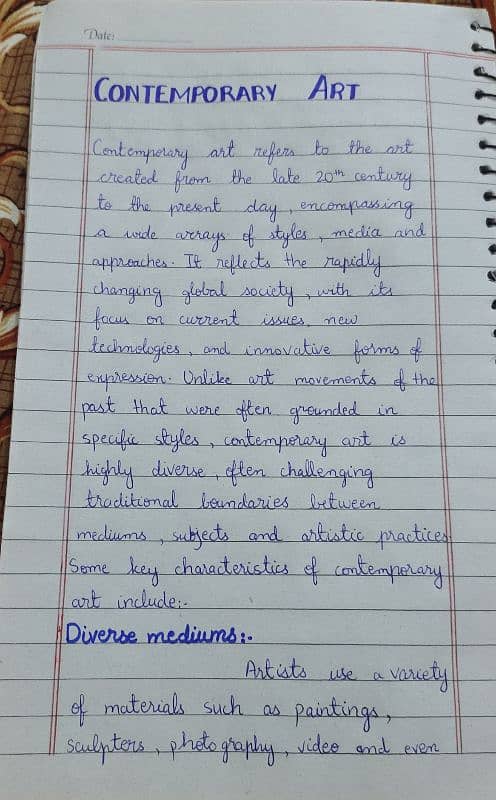 Date:
CONTEMPORARY ART
Contemporary art refers to the art
created from the late 20th century
to the present day, encompassing
a wide arrays of styles, media and
approaches. It reflects the rapidly
changing global society, with its
focus on current issues, new
technologies, and innovative forms of
expression. Unlike art movements of the
past that were often grounded in
specific styles, contemporary art is
highly diverse, often challenging
traditional boundaries between
mediums, subjects and artistic practices
Some key characteristics of contemporary
art include:-
Diverse mediums:-
Artists use a variety
of materials such as paintings,
sculpters, photography, video and even